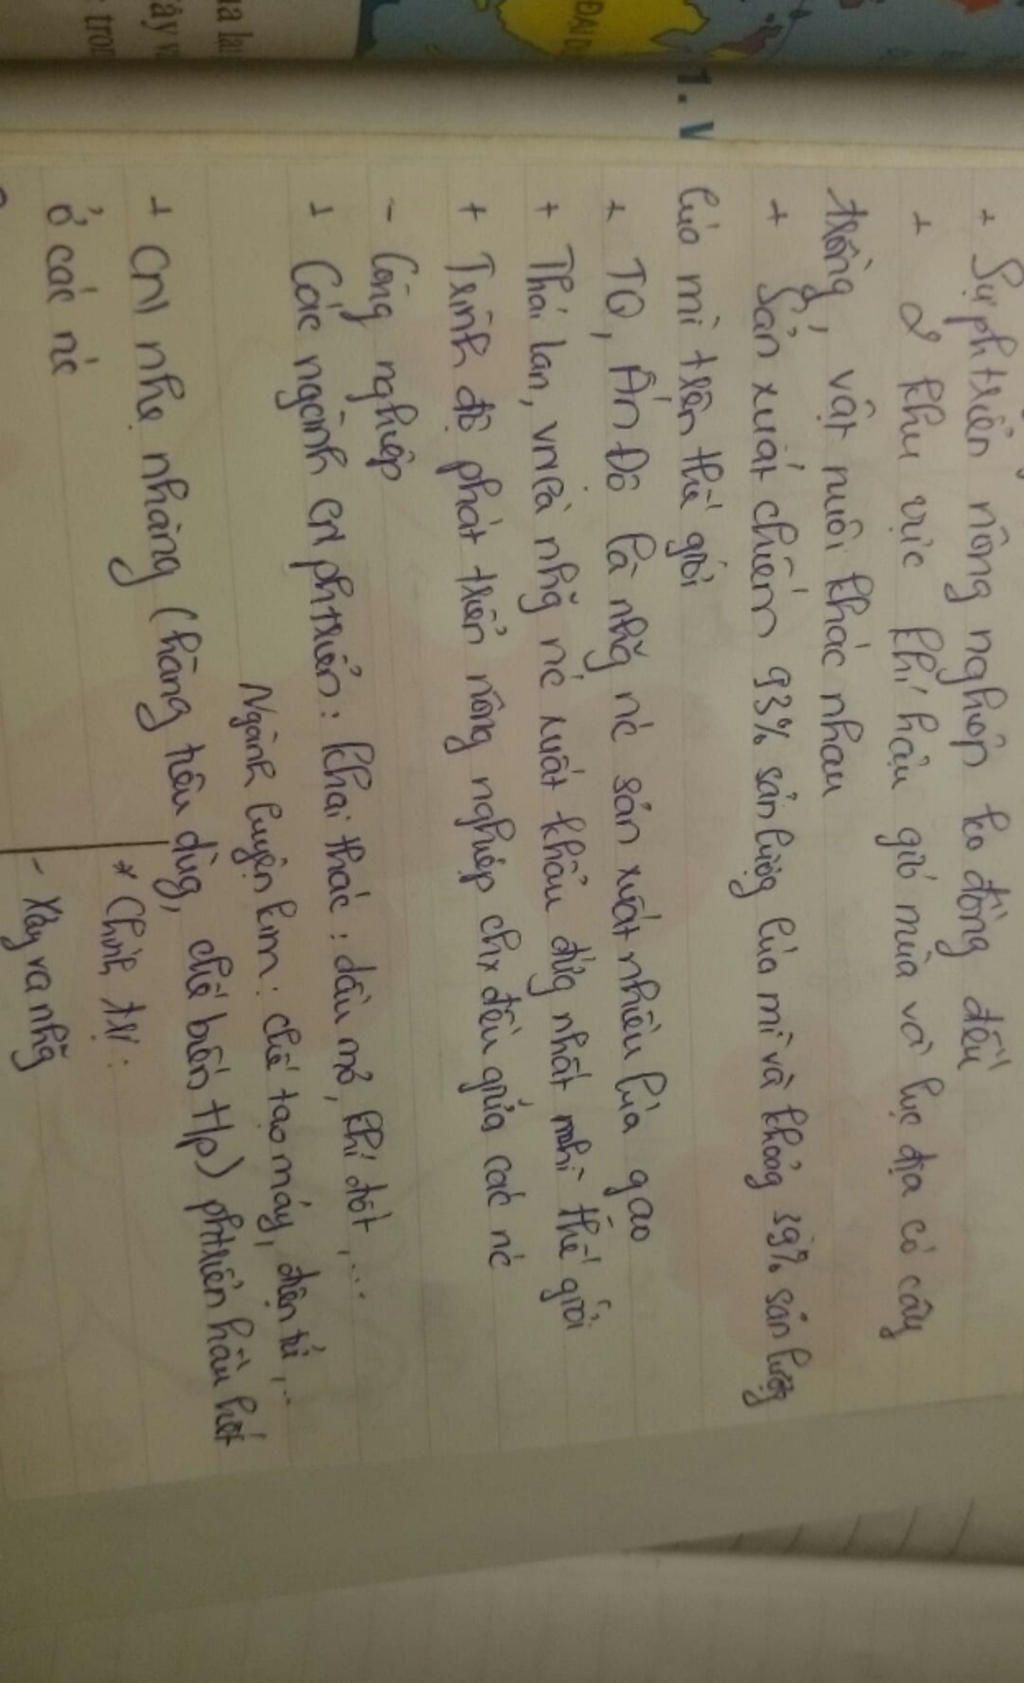 + Sự phtriển nông nghiệp ko đồng đều
+ 2 khu vực khí hậu gió mùa và lục địa có cây
trồng, vật nuôi khác nhau
+ Sản xuất chiếm 93% sản lượg lúa mì và khoảg 39% sản lượg
lúa mì trên thế giới
+ TQ, Ấn Độ là nhữg nc sản xuất nhiều lúa gạo
+ Thái lan, VN là nhữg nc xuất khẩu đứg nhất nhì thế giới
+ Trình độ phát triển nông nghiệp chx đều giữa các nc
- Công nghiệp
+ Các ngành CN phtriển: khai thác: dầu mỏ, khí đốt,...
Ngành luyện kim: chế tạo máy, điện tử,..
+ CN nhẹ nhàng (hàng tiêu dùg, chế biến tp) phtriển hầu hết
ở các nc
* Chính trị:
- Xảy ra nhữg
1. V
ĐẠI D